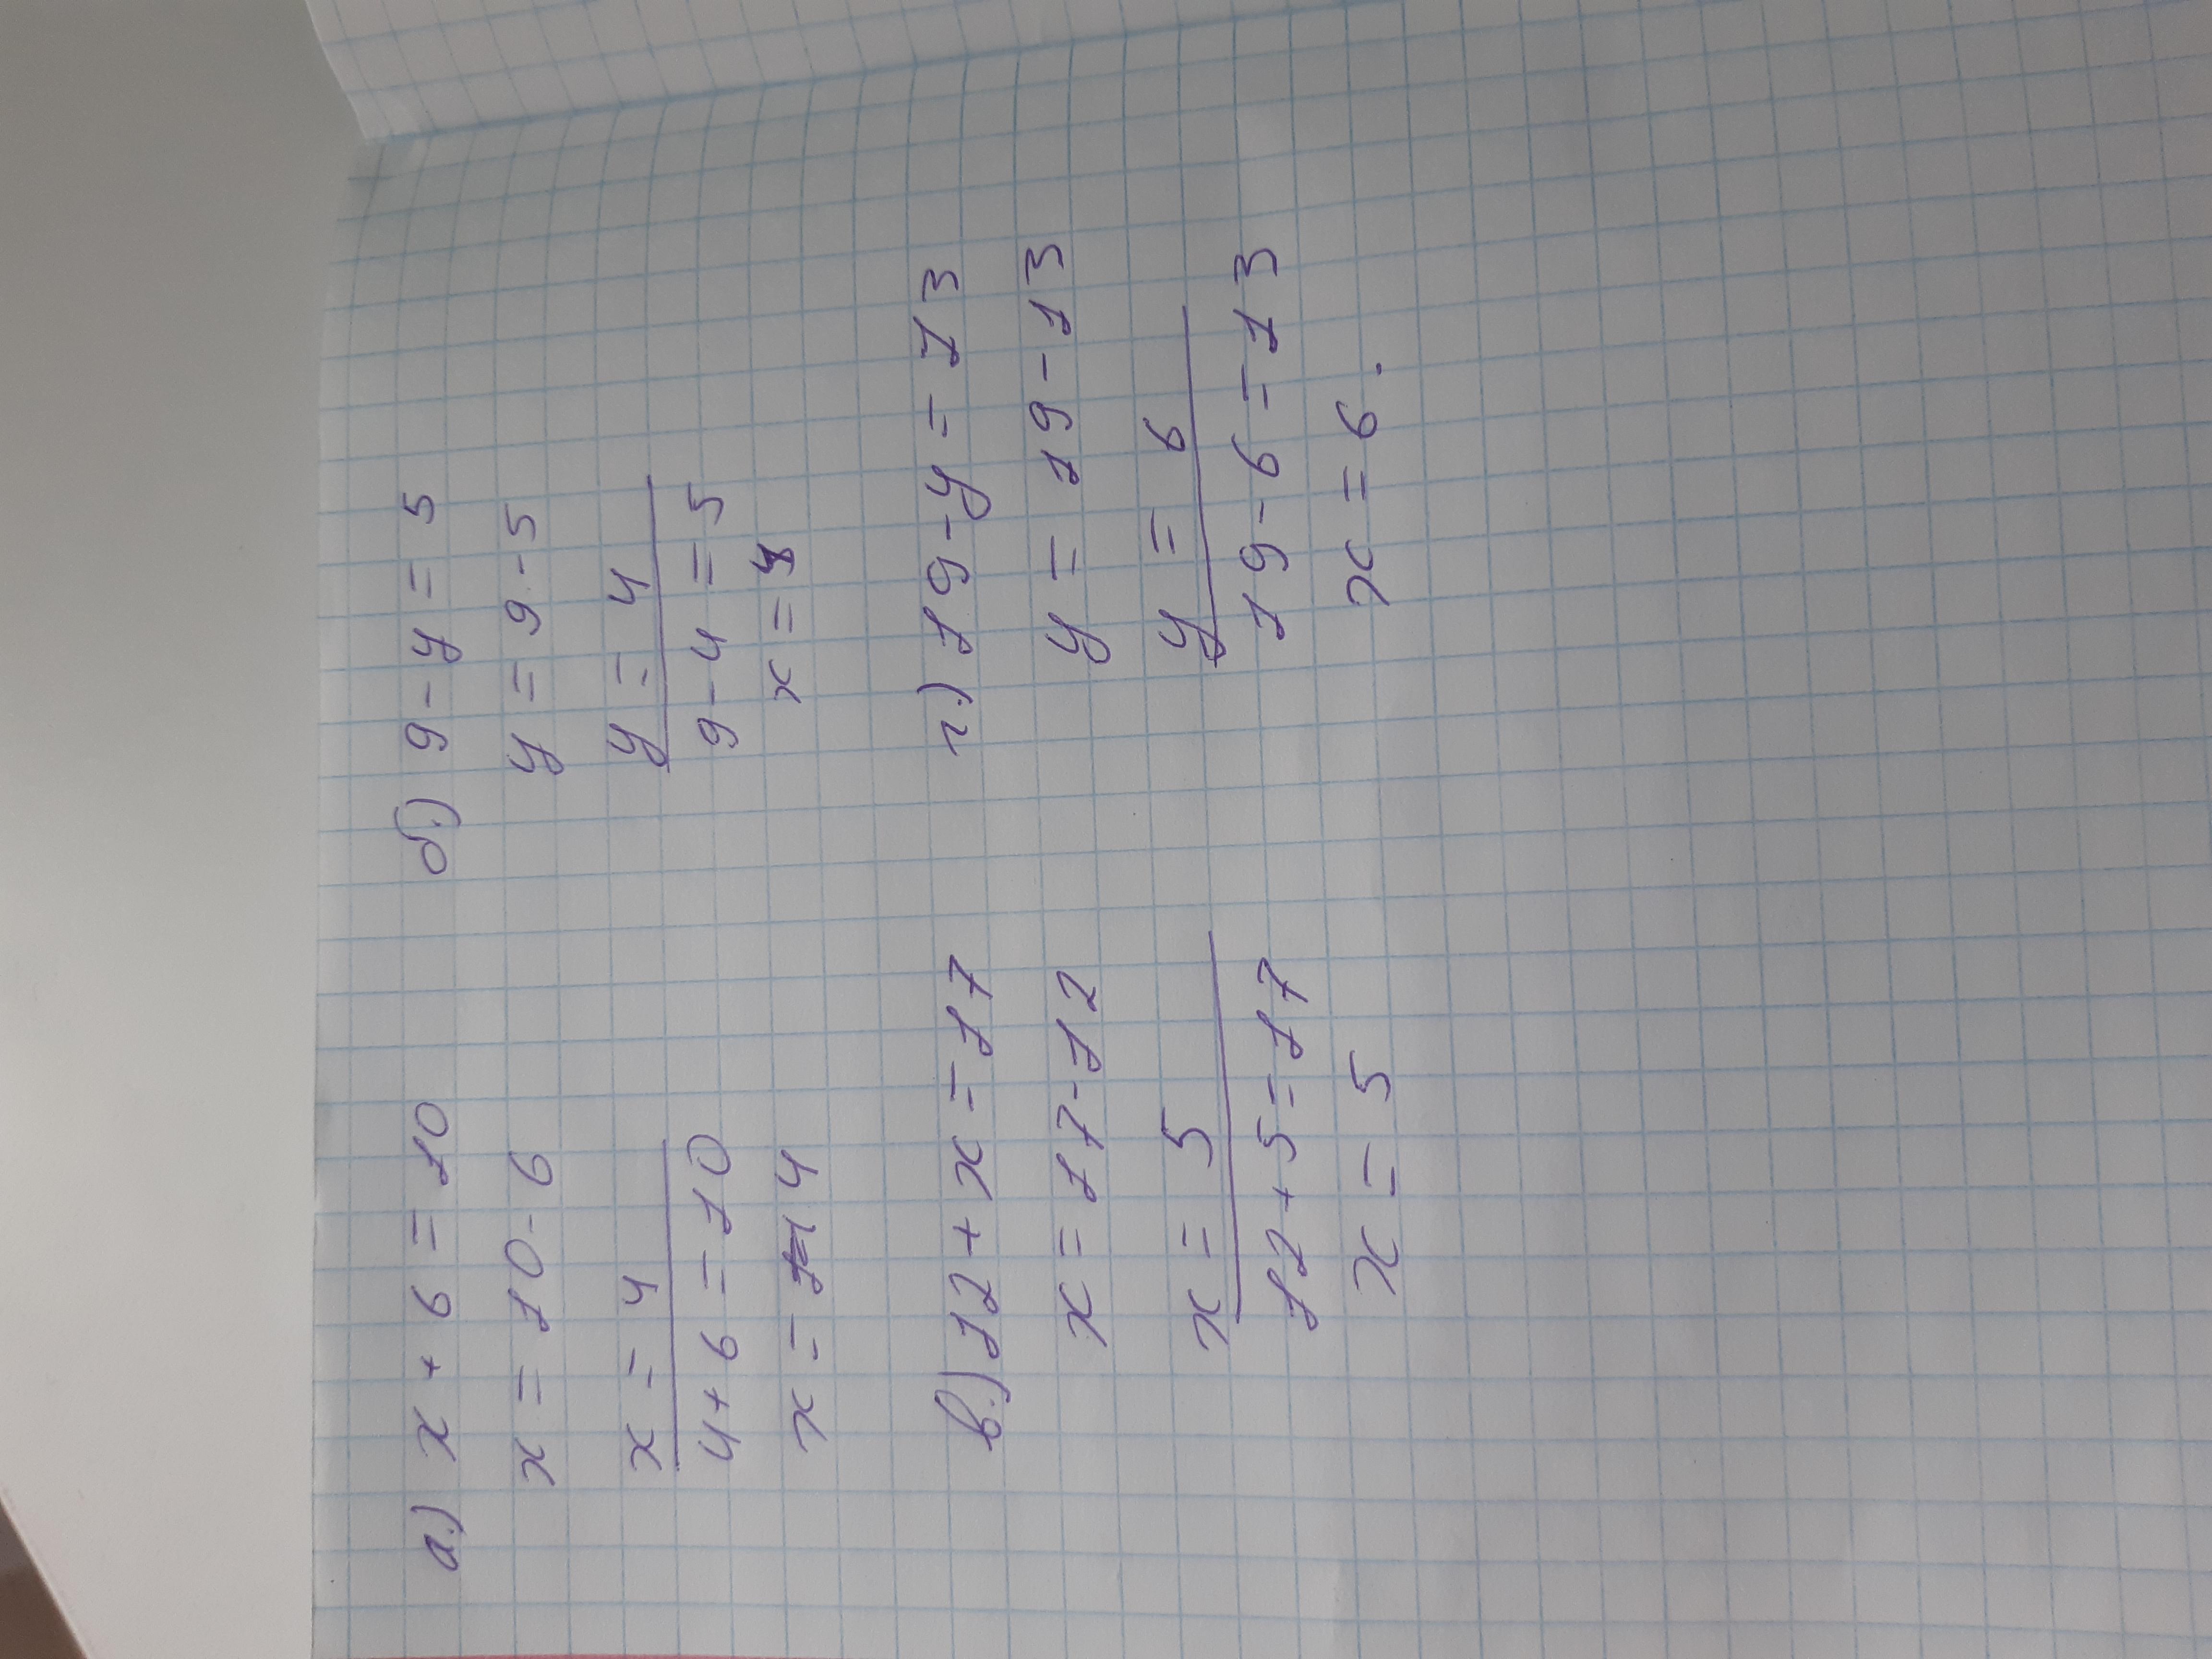 а.) x + 6 = 10
x = 10 - 6
x = 4
4 + 6 = 10
x = 4
б.) 9 - y = 5
y = 9 - 5
y = 4
9 - 4 = 5
x = 4
в.) 12 + x = 17
x = 17 - 12
x = 5
12 + 5 = 17
x = 5
г.) 19 - y = 13
y = 19 - 13
y = 6
19 - 6 = 13
x = 6.